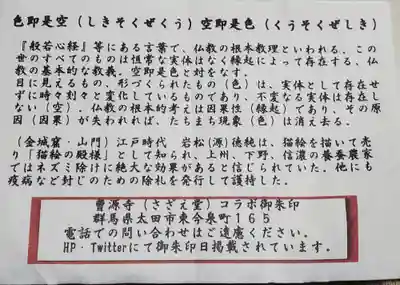 色即是空（しきそくぜくう）空即是色（くうそくぜしき）
『般若心経』等にある言葉で、仏教の根本教理といわれる。この
世のすべてのものは恒常な実体はなく縁起によって存在する、仏
教の基本的な教義。空即是色と対をなす。
目に見えるもの、形づくられたもの（色）は、実体として存在せ
ずに時々刻々と変化しているものであり、不変なる実体は存在し
ない（空）。仏教の根本的考えは因果性（縁起）であり、その原
因（因果）が失われれば、たちまち現象（色）は消え去る。
（金城窟・山門）江戸時代　岩松(源)徳純は、猫絵を描いて売
り「猫絵の殿様」として知られ、上州、下野、信濃の養蚕農家
ではネズミ除けに絶大な効果があると信じられていた。他にも
疫病など封じのための除札を発行して護持した。
曹源寺（さざえ堂）コラボ御朱印
群馬県太田市東今泉町１６５
電話での問い合わせはご遠慮ください。
HP・Twitterにて御朱印日掲載されています。